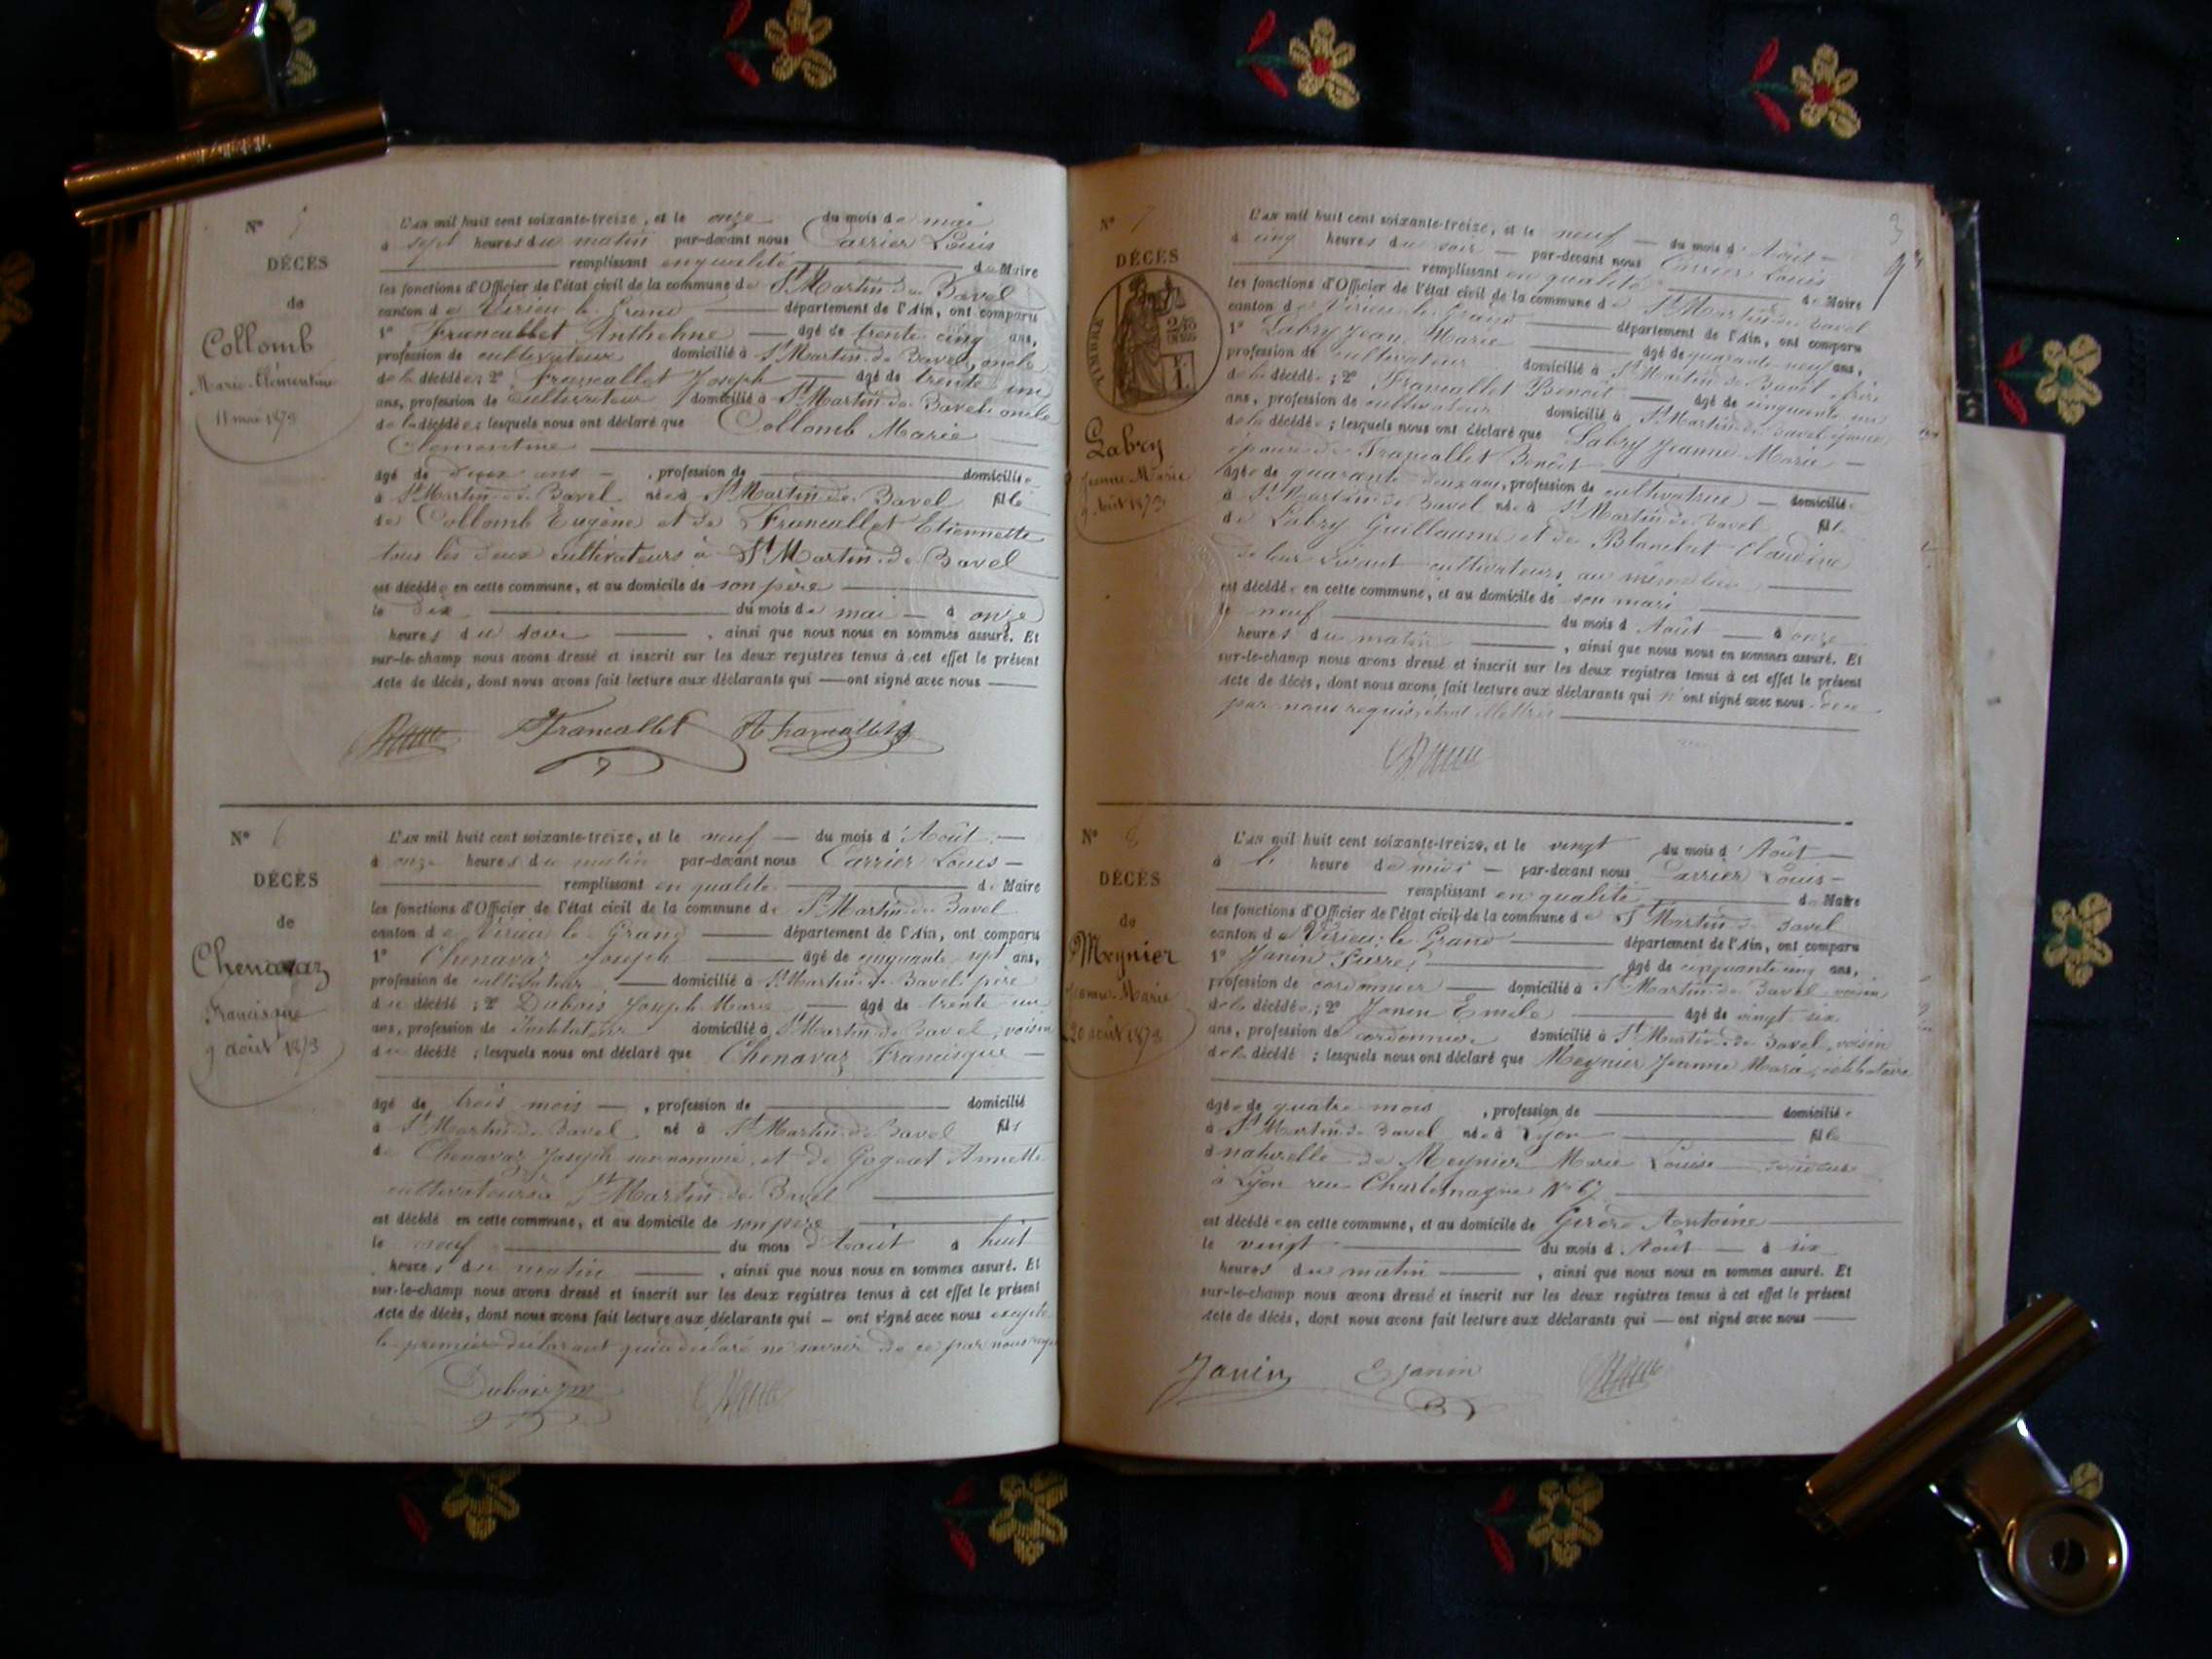 N° 5
DÉCÈS
de
Collomb
Marie-Clémentine
11 mai 1873
L'AN mil huit cent soixante-treize, et le onze du mois de mai
à sept heures du matin par-devant nous Carrier Louis
remplissant en qualité de Maire
les fonctions d'Officier de l'état civil de la commune de St Martin de Bavel
canton de Virieu le Grand département de l'Ain, ont comparu
1° Francallet Anthelme âgé de trente cinq ans,
profession de cultivateur domicilié à St Martin de Bavel, oncle
de la décédée; 2° Francallet Joseph âgé de trente un
ans, profession de cultivateur domicilié à St Martin de Bavel oncle
de la décédée; lesquels nous ont déclaré que Collomb Marie
Clémentine
âgé de deux ans, profession de domiciliée
à St Martin de Bavel née à St Martin de Bavel fille
de Collomb Eugène et de Francallet Etiennette
tous les deux cultivateurs à St Martin de Bavel
est décédée en cette commune, et au domicile de son père
le dix du mois de mai à onze
heures du soir, ainsi que nous nous en sommes assuré. Et
sur-le-champ nous avons dressé et inscrit sur les deux registres tenus à cet effet le présent
Acte de décès, dont nous avons fait lecture aux déclarants qui — ont signé avec nous
J Francallet A Francallet
N° 6
DÉCÈS
de
Chenavaz
Francisque
9 août 1873
L'AN mil huit cent soixante-treize, et le neuf du mois d'Août
à onze heures du matin par-devant nous Carrier Louis
remplissant en qualité de Maire
les fonctions d'Officier de l'état civil de la commune de St Martin de Bavel
canton de Virieu le Grand département de l'Ain, ont comparu
1° Chenavaz Joseph âgé de cinquante sept ans,
profession de cultivateur domicilié à St Martin de Bavel père
du décédé; 2° Dubois Joseph Marie âgé de trente un
ans, profession de Instituteur domicilié à St Martin de Bavel, voisin
du décédé; lesquels nous ont déclaré que Chenavaz Francisque
âgé de trois mois, profession de domicilié
à St Martin de Bavel né à St Martin de Bavel fils
de Chenavaz Joseph susnommé, et de Gogeat Annette
cultivateurs à St Martin de Bavel
est décédé en cette commune, et au domicile de son père
le neuf du mois d'Août à huit
heures du matin, ainsi que nous nous en sommes assuré. Et
sur-le-champ nous avons dressé et inscrit sur les deux registres tenus à cet effet le présent
Acte de décès, dont nous avons fait lecture aux déclarants qui — ont signé avec nous excepté
le premier déclarant qui a déclaré ne savoir de ce par nous requis
Dubois jm
N° 7
DÉCÈS
TIMBRE
Labry
Jeanne Marie
9 Août 1873
3
L'AN mil huit cent soixante-treize, et le neuf du mois d'Août
à cinq heures du soir par-devant nous Carrier Louis
remplissant en qualité de Maire
les fonctions d'Officier de l'état civil de la commune de St Martin de Bavel
canton de Virieu le Grand département de l'Ain, ont comparu
1° Labry Jean Marie âgé de quarante neuf ans,
profession de cultivateur domicilié à St Martin de Bavel frère
de la décédée; 2° Francallet Benoît âgé de cinquante un
ans, profession de cultivateur domicilié à St Martin de Bavel époux
de la décédée; lesquels nous ont déclaré que Labry Jeanne Marie
épouse de Francallet Benoît
âgée de quarante deux ans, profession de cultivatrice domiciliée
à St Martin de Bavel née à St Martin de Bavel fille
de Labry Guillaume et de Blanchet Claudine
de leur vivant cultivateurs au même lieu
est décédée en cette commune, et au domicile de son mari
le neuf du mois d'Août à onze
heures du matin, ainsi que nous nous en sommes assuré. Et
sur-le-champ nous avons dressé et inscrit sur les deux registres tenus à cet effet le présent
Acte de décès, dont nous avons fait lecture aux déclarants qui n'ont signé avec nous de ce
par nous requis, étant illettrés
N° 8
DÉCÈS
de
Meynier
Jeanne-Marie
20 août 1873
L'AN mil huit cent soixante-treize, et le vingt du mois d'Août
à l' heure de midi par-devant nous Carrier Louis
remplissant en qualité de Maire
les fonctions d'Officier de l'état civil de la commune de St Martin de Bavel
canton de Virieu le Grand département de l'Ain, ont comparu
1° Janin Pierre âgé de cinquante cinq ans,
profession de cordonnier domicilié à St Martin de Bavel voisin
de la décédée; 2° Janin Emile âgé de vingt six
ans, profession de cordonnier domicilié à St Martin de Bavel, voisin
de la décédé; lesquels nous ont déclaré que Meynier Jeanne Marie, célibataire
âgée de quatre mois, profession de domiciliée
à St Martin de Bavel née à Lyon fille
naturelle de Meynier Marie Louise
à Lyon rue Charlemagne N° 67
est décédée en cette commune, et au domicile de Girerd Antoine
le vingt du mois d'Août à six
heures du matin, ainsi que nous nous en sommes assuré. Et
sur-le-champ nous avons dressé et inscrit sur les deux registres tenus à cet effet le présent
Acte de décès, dont nous avons fait lecture aux déclarants qui — ont signé avec nous
Janin E Janin